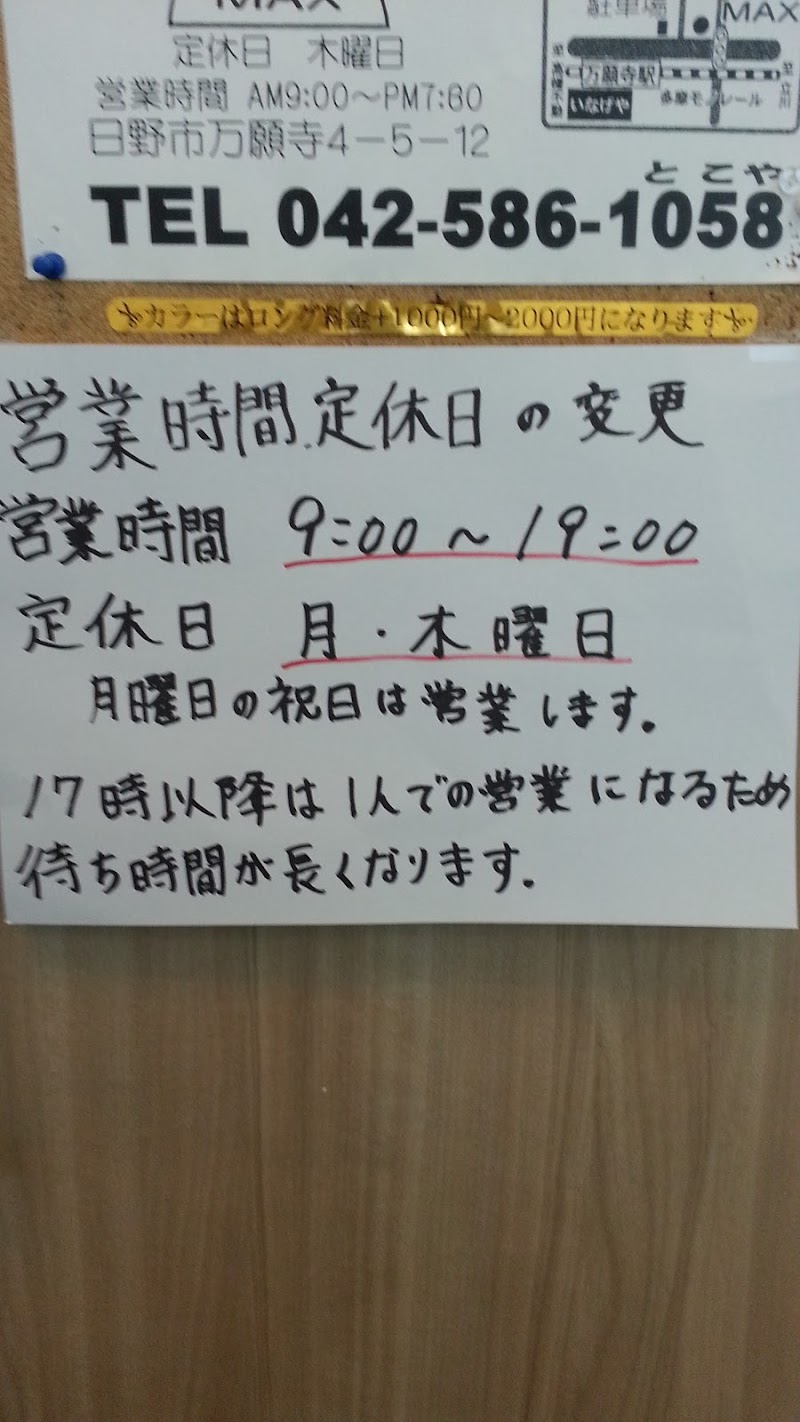 MAX
定休日 木曜日
営業時間 AM9:00〜PM7:60
日野市万願寺4−5−12
とこや
TEL 042-586-1058
駐車場
MAX
至高幡不動
万願寺駅
至立川
いなげや
多摩モノレール
カラーはロング料金+1000円~2000円になります
営業時間.定休日の変更
営業時間 9:00～19:00
定休日 月・木曜日
月曜日の祝日は営業します。
17時以降は1人での営業になるため
待ち時間が長くなります.